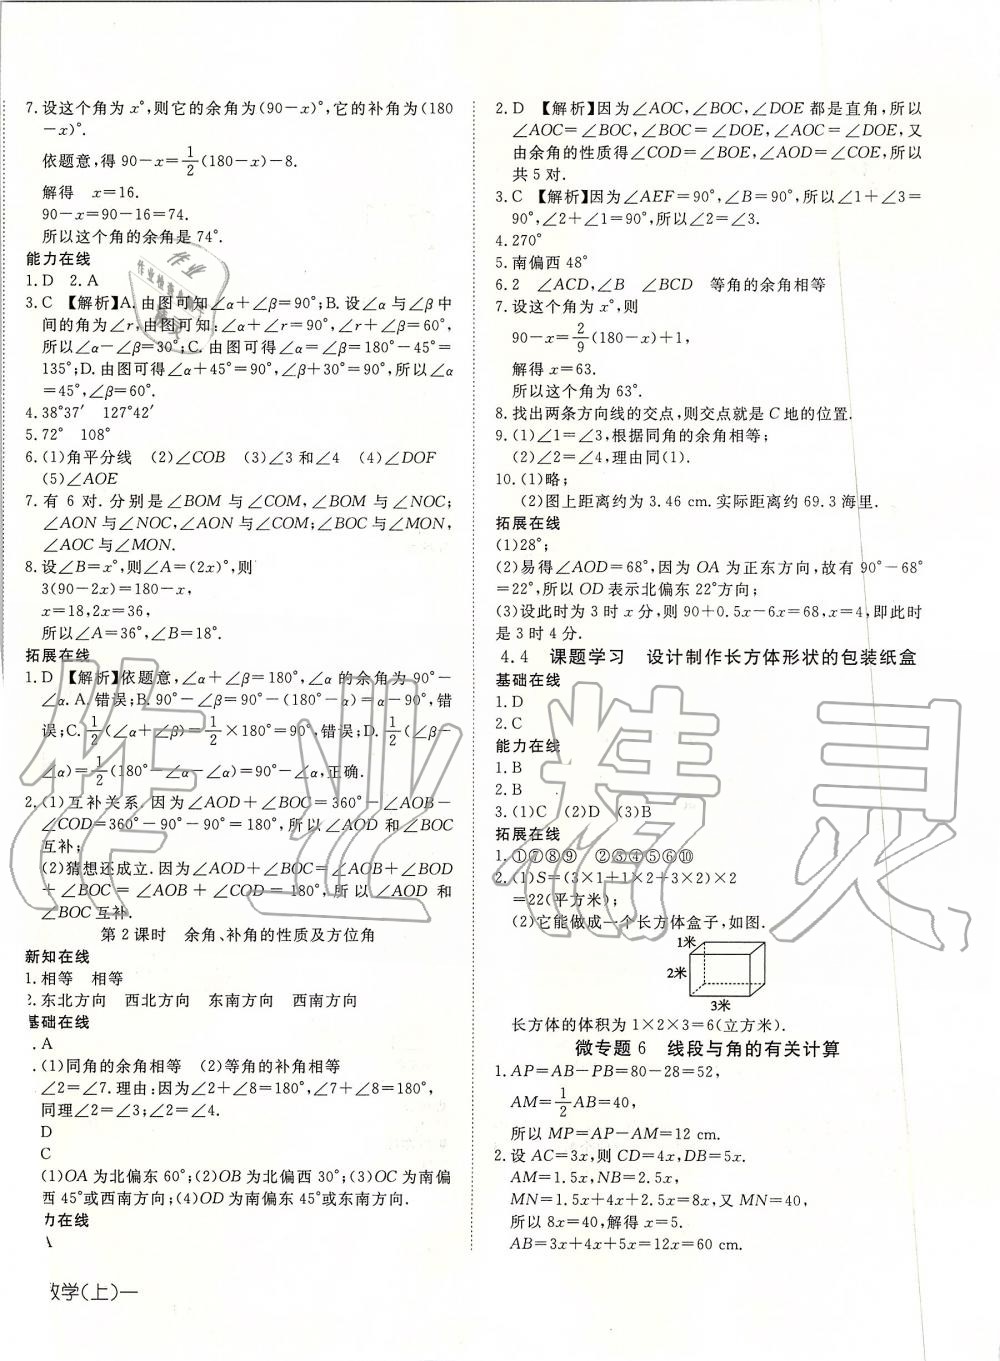 7.设这个角为 x°,则它的余角为(90-x)°,它的补角为(180
-x)°.
依题意,得 90-x=1/2(180-x)-8.
解得 x=16.
90-x=90-16=74.
所以这个角的余角是 74°.
能力在线
1.D 2.A
3.C 【解析】A.由图可知∠α+∠β=90°;B.设∠α 与∠β 中
间的角为∠r,由图可知:∠α+∠r=90°,∠r+∠β=60°,
所以∠α-∠β=30°;C.由图可得∠α=∠β=180°-45°=
135°;D.由图可得∠α+45°=90°,∠β+30°=90°,所以∠α
=45°,∠β=60°.
4.38°37′ 127°42′
5.72° 108°
6.(1)角平分线 (2)∠COB (3)∠3 和∠4 (4)∠DOF
(5)∠AOE
7.有 6 对.分别是∠BOM 与∠COM,∠BOM 与∠NOC;
∠AON 与∠NOC,∠AON 与∠COM;∠BOC 与∠MON,
∠AOC 与∠MON.
8.设∠B=x°,则∠A=(2x)°,则
3(90-2x)=180-x,
x=18,2x=36,
所以∠A=36°,∠B=18°.
拓展在线
1.D 【解析】依题意,∠α+∠β=180°,∠α 的余角为 90°-
∠α.A.错误;B.90°-∠β=90°-(180°-α)=α-90°,错
误;C.1/2(∠α+∠β)=1/2×180°=90°,错误;D.1/2(∠β-
∠α)=1/2(180°-∠α-∠α)=90°-∠α,正确.
2.(1)互补关系.因为∠AOD+∠BOC=360°-∠AOB-
∠COD=360°-90°-90°=180°,所以∠AOD 和∠BOC
互补;
(2)猜想还成立.因为∠AOD+∠BOC=∠AOB+∠BOD
+∠BOC=∠AOB+∠COD=180°,所以∠AOD 和
∠BOC 互补.
第 2 课时 余角、补角的性质及方位角
新知在线
1.相等 相等
2.东北方向 西北方向 东南方向 西南方向
基础在线
.A
.(1)同角的余角相等 (2)等角的补角相等
∠2=∠7.理由:因为∠2+∠8=180°,∠7+∠8=180°,
同理∠2=∠3;∠2=∠4.
D
C
(1)OA 为北偏东 60°;(2)OB 为北偏西 30°;(3)OC 为南偏
西 45°或西南方向;(4)OD 为南偏东 45°或东南方向.
力在线
A
数学(上)一
2.D 【解析】因为∠AOC,∠BOC,∠DOE 都是直角,所以
∠AOC=∠BOC,∠BOC=∠DOE,∠AOC=∠DOE,又
由余角的性质得∠COD=∠BOE,∠AOD=∠COE,所以
共 5 对.
3.C 【解析】因为∠AEF=90°,∠B=90°,所以∠1+∠3=
90°,∠2+∠1=90°,所以∠2=∠3.
4.270°
5.南偏西 48°
6.2 ∠ACD,∠B ∠BCD 等角的余角相等
7.设这个角为 x°,则
90-x=2/9(180-x)+1,
解得 x=63.
所以这个角为 63°.
8.找出两条方向线的交点,则交点就是 C 地的位置.
9.(1)∠1=∠3,根据同角的余角相等;
(2)∠2=∠4,理由同(1).
10.(1)略;
(2)图上距离约为 3.46 cm.实际距离约 69.3 海里.
拓展在线
(1)28°;
(2)易得∠AOD=68°,因为 OA 为正东方向,故有 90°-68°
=22°,所以 OD 表示北偏东 22°方向;
(3)设此时为 3 时 x 分,则 90+0.5x-6x=68,x=4,即此时
是 3 时 4 分.
4.4 课题学习 设计制作长方体形状的包装纸盒
基础在线
1.D
2.C
能力在线
1.B
2.B
3.(1)C (2)D (3)B
拓展在线
1.①⑦⑧⑨ ②③④⑤⑥⑩
2.(1)S=(3×1+1×2+3×2)×2
=22(平方米);
(2)它能做成一个长方体盒子,如图.
1米
2米
3米
长方体的体积为 1×2×3=6(立方米).
微专题 6 线段与角的有关计算
1.AP=AB-PB=80-28=52,
AM=1/2AB=40,
所以 MP=AP-AM=12 cm.
2.设 AC=3x,则 CD=4x,DB=5x.
AM=1.5x,
MN=1.5x+4x+2.5x=8x,又 MN=40,
所以 8x=40,解得 x=5.
AB=3x+4x+5x=12x=60 cm.
作业精灵